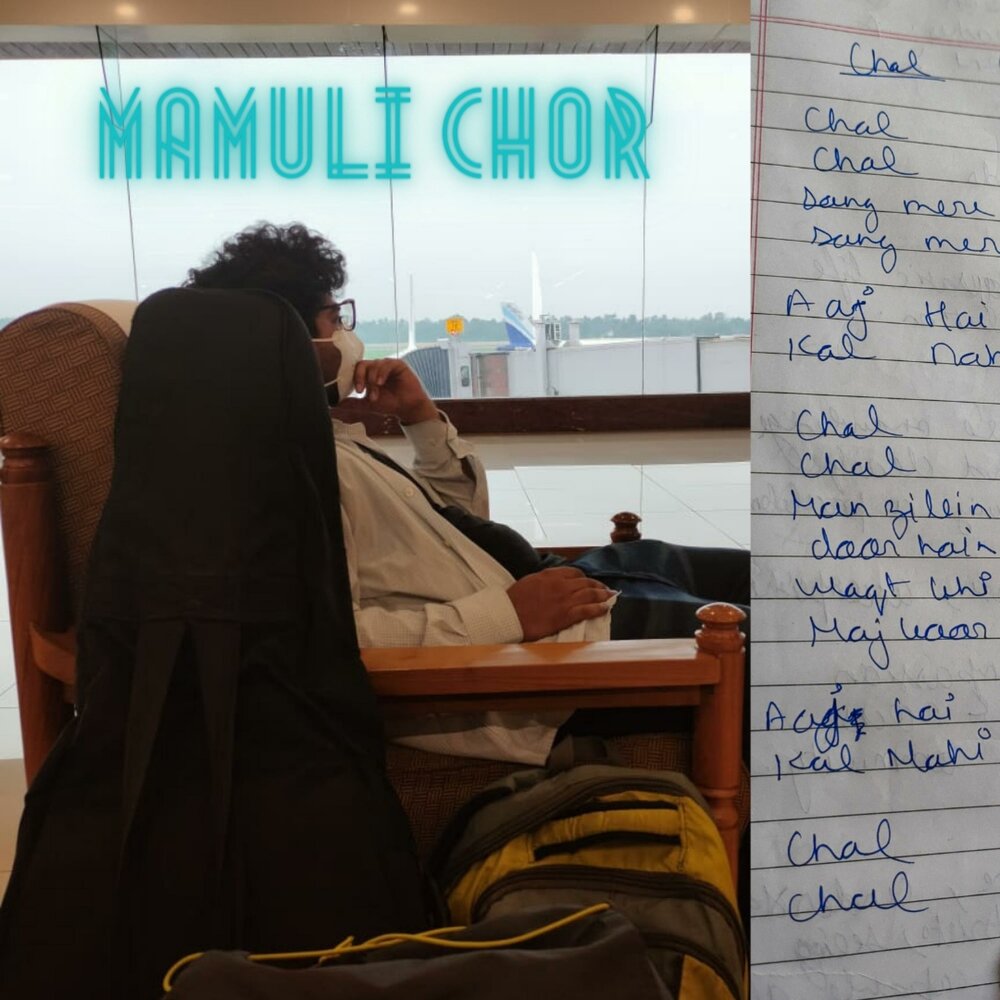 MAMULI CHOR
Chal
Chal
Chal
Sang mere
Sang mer
Aaj Hai
Kal nah
Chal
Chal
Manzilein
door hain
waqt bhi
Majboor
Aaj hai
Kal Nahi
Chal
Chal